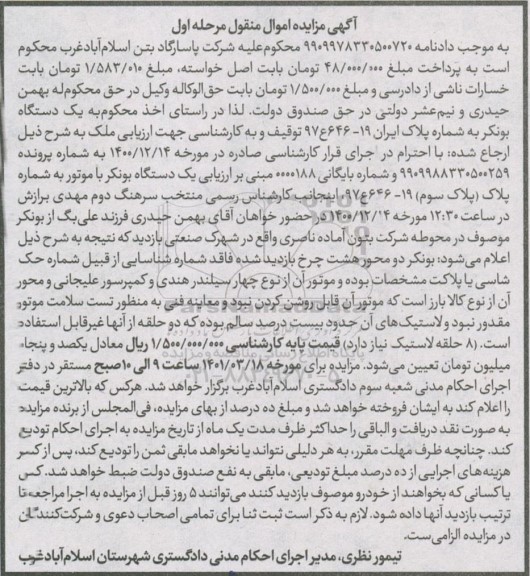 آگهی مزایده اموال منقول مرحله اول
به موجب دادنامه ۹۹۰۹۹۷۸۳۳۰۵۰۰۷۲۰ محکوم‌علیه شرکت پاسارگاد بتن اسلام‌آبادغرب محکوم
است به پرداخت مبلغ ۴۸/۰۰۰/۰۰۰ تومان بابت اصل خواسته، مبلغ ۱/۵۸۳/۰۱۰ تومان بابت
خسارات ناشی از دادرسی و مبلغ ۱/۵۰۰/۰۰۰ تومان بابت حق‌الوکاله وکیل در حق محکوم‌له بهمن
حیدری و نیم‌عشر دولتی در حق صندوق دولت. لذا در راستای اخذ محکوم‌به یک دستگاه
بونکر به شماره پلاک ایران ۱۹- ۶۴۶ع۹۷ توقیف و به کارشناسی جهت ارزیابی ملک به شرح ذیل
ارجاع شده: با احترام در اجرای قرار کارشناسی صادره در مورخه ۱۴۰۰/۱۲/۱۴ به شماره پرونده
۹۹۰۹۹۸۸۳۳۰۵۰۰۲۵۹ و شماره بایگانی ۰۰۰۰۱۸۸ مبنی بر ارزیابی یک دستگاه بونکر با موتور به شماره
پلاک (پلاک سوم) ۱۹- ۶۴۶ع۹۷ اینجانب کارشناس رسمی منتخب سرهنگ دوم مهدی برازش
در ساعت ۱۲:۳۰ مورخه ۱۴۰۰/۱۲/۱۴ در حضور خواهان آقای بهمن حیدری فرزند علی‌بگ از بونکر
موصوف در محوطه شرکت بتون آماده ناصری واقع در شهرک صنعتی بازدید که نتیجه به شرح ذیل
اعلام می‌شود: بونکر دو محور هشت چرخ بازدید شده فاقد شماره شناسایی از قبیل شماره حک
شاسی یا پلاکت مشخصات بوده و موتور آن از نوع چهار سیلندر هندی و کمپرسور علیجانی و محور
آن از نوع کالا بارز است که موتور آن قابل روشن کردن نبود و معاینه فنی به منظور تست سلامت موتور
مقدور نبود و لاستیک‌های آن حدود بیست درصد سالم بوده که دو حلقه از آنها غیرقابل استفاده
است. (۸ حلقه لاستیک نیاز دارد) قیمت پایه کارشناسی ۱/۵۰۰/۰۰۰/۰۰۰ ریال معادل یکصد و پنجاه
میلیون تومان تعیین می‌شود. مزایده برای مورخه ۱۴۰۱/۰۳/۱۸ ساعت ۹ الی ۱۰ صبح مستقر در دفتر
اجرای احکام مدنی شعبه سوم دادگستری اسلام‌آبادغرب برگزار خواهد شد. هرکس که بالاترین قیمت
را اعلام کند به ایشان فروخته خواهد شد و مبلغ ده درصد از بهای مزایده، فی‌المجلس از برنده مزایده
به صورت نقد دریافت و الباقی را حداکثر ظرف مدت یک ماه از تاریخ مزایده به اجرای احکام تودیع
کند. چنانچه ظرف مهلت مقرر، به هر دلیلی نتواند یا نخواهد مابقی ثمن را تودیع کند، پس از کسر
هزینه‌های اجرایی از ده درصد مبلغ تودیعی، مابقی به نفع صندوق دولت ضبط خواهد شد. کس
یا کسانی که بخواهند از خودرو موصوف بازدید کنند می‌توانند ۵ روز قبل از مزایده به اجرا مراجعه تا
ترتیب بازدید آنها داده شود. لازم به ذکر است ثبت ثنا برای تمامی اصحاب دعوی و شرکت‌کنندگان
در مزایده الزامی‌ست.
تیمور نظری، مدیر اجرای احکام مدنی دادگستری شهرستان اسلام‌آبادغرب